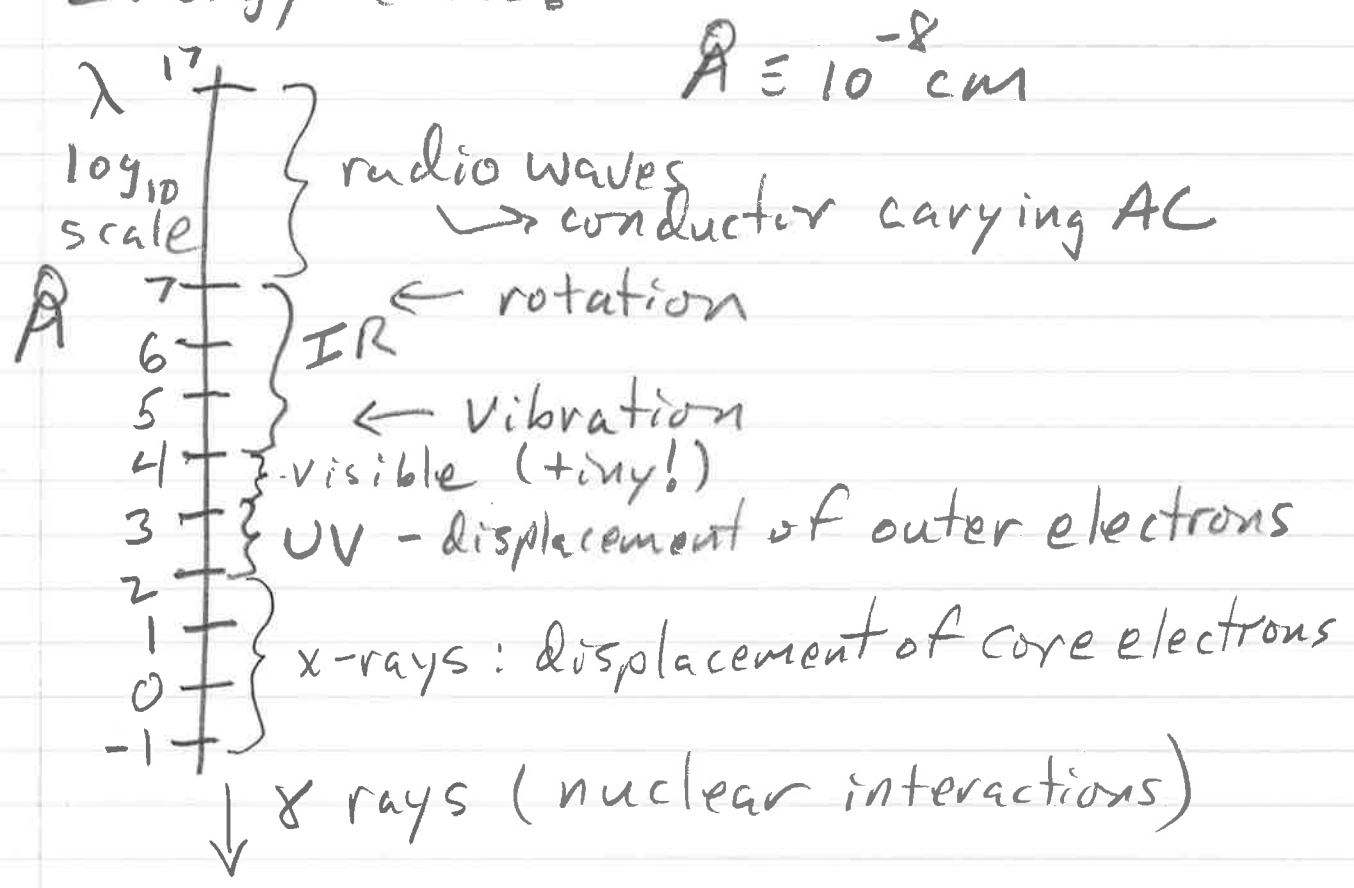 Å ≡ 10⁻⁸ cm
λ 17
log₁₀
scale
radio waves
↳ conductor carying AC
Å 7
← rotation
6
IR
5
← vibration
4
visible (tiny!)
3
UV - displacement of outer electrons
2
1
x-rays: displacement of core electrons
0
-1
↓ γ rays (nuclear interactions)